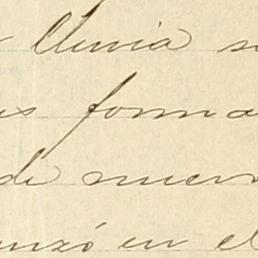 lluvia s
s forma
de nuev
nzó en el